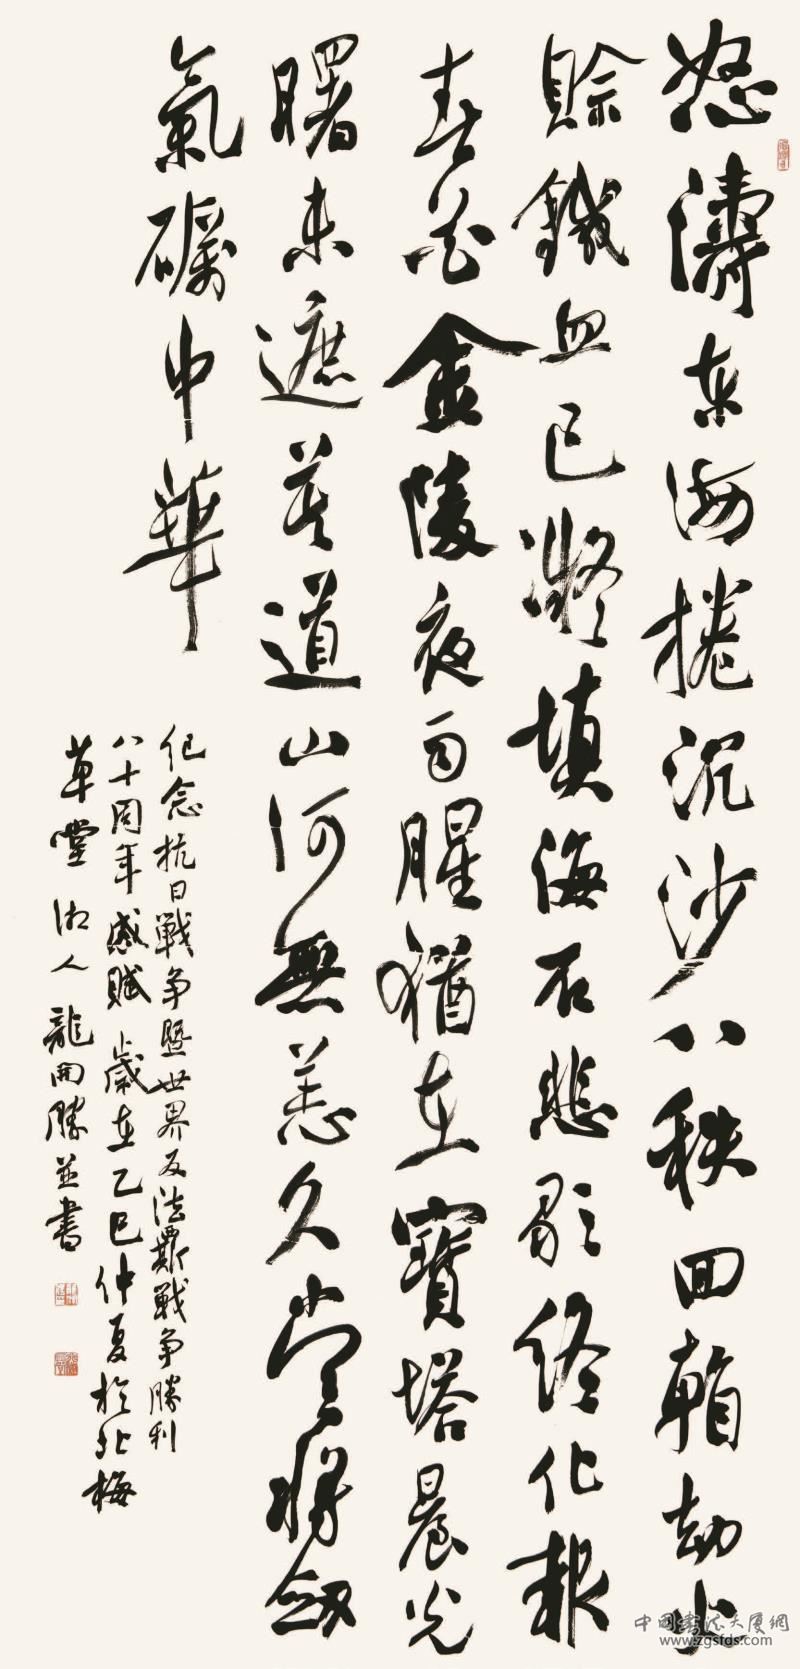 怒濤東海捲沉沙八秩回劫火
賒鐵血已凝填海石悲歌終化報
春花金陵夜雨腥猶在寶塔晨光
曙未遮莫道山河無恙久常將劍
氣礪中華
纪念抗日戰争暨世界反法斯戰争勝利
八十周年感賦歲在乙巳仲夏於北梅
草堂湘人龍開勝並書
中国书法大厦網
www.zgsfds.com